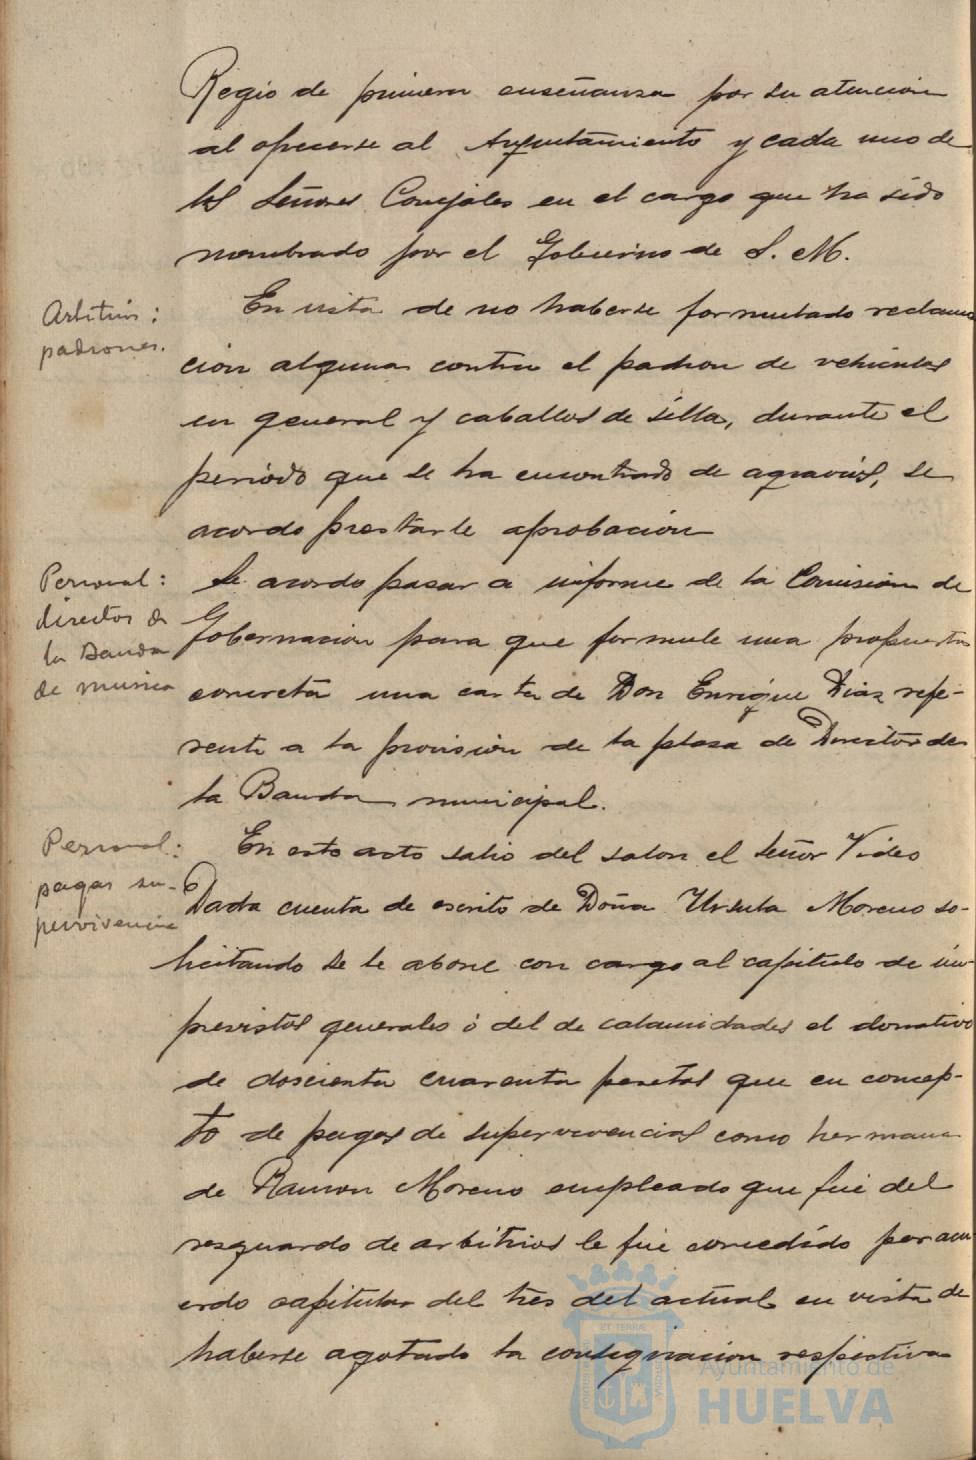 Regio de primera enseñanza por su atencion
al ofrecerse al Ayuntamiento y cada uno de
los Señores Concejales en el cargo que ha sido
nombrado por el Gobierno de S. M.
Arbitrios:
padrones.
En vista de no haberse formulado reclama
ción alguna contra el padron de vehiculos
en general y caballos de silla, durante el
periodo que se ha encontrado de agravios, se
acordo prestarle aprobación
Personal:
director de
la Banda
de musica
Se acordo pasar a informe de la Comision de
Gobernacion para que formule una propuesta
concreta una carta de Don Enrique Diaz refe-
rente a la provision de la plaza de Director de
la Banda municipal.
Personal:
pagas su-
pervivencia
En este acto salio del salon el señor Video
Dada cuenta de escrito de Doña Ursula Moreno so-
licitando se le abone con cargo al capitulo de im-
previstos generales ó del de calamidades el donativo
de doscienta cuarenta pesetas que en concep-
to de pagas de supervivencias como hermana
de Ramon Moreno empleado que fue del
resguardo de arbitrios le fue concedido por acu
erdo capitular del tres del actual en vista de
haberse agotado la consignacion respectiva
Ayuntamiento de
HUELVA